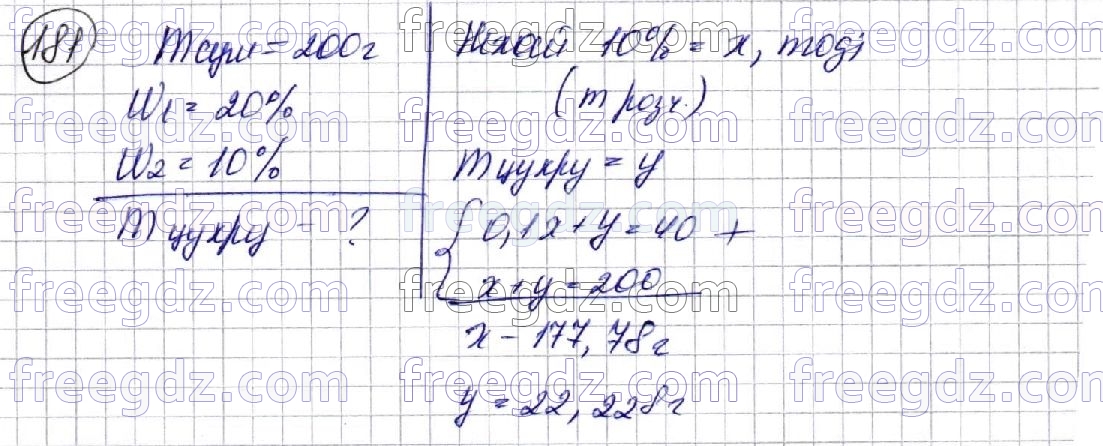 181
m сум = 200г
W1 = 20%
W2 = 10%
m цукру - ?
Нехай 10% = x, тоді
(m розч.)
m цукру = y
0,1x + y = 40 +
x + y = 200
x - 177,78г
y = 22,228г
freegdz.com